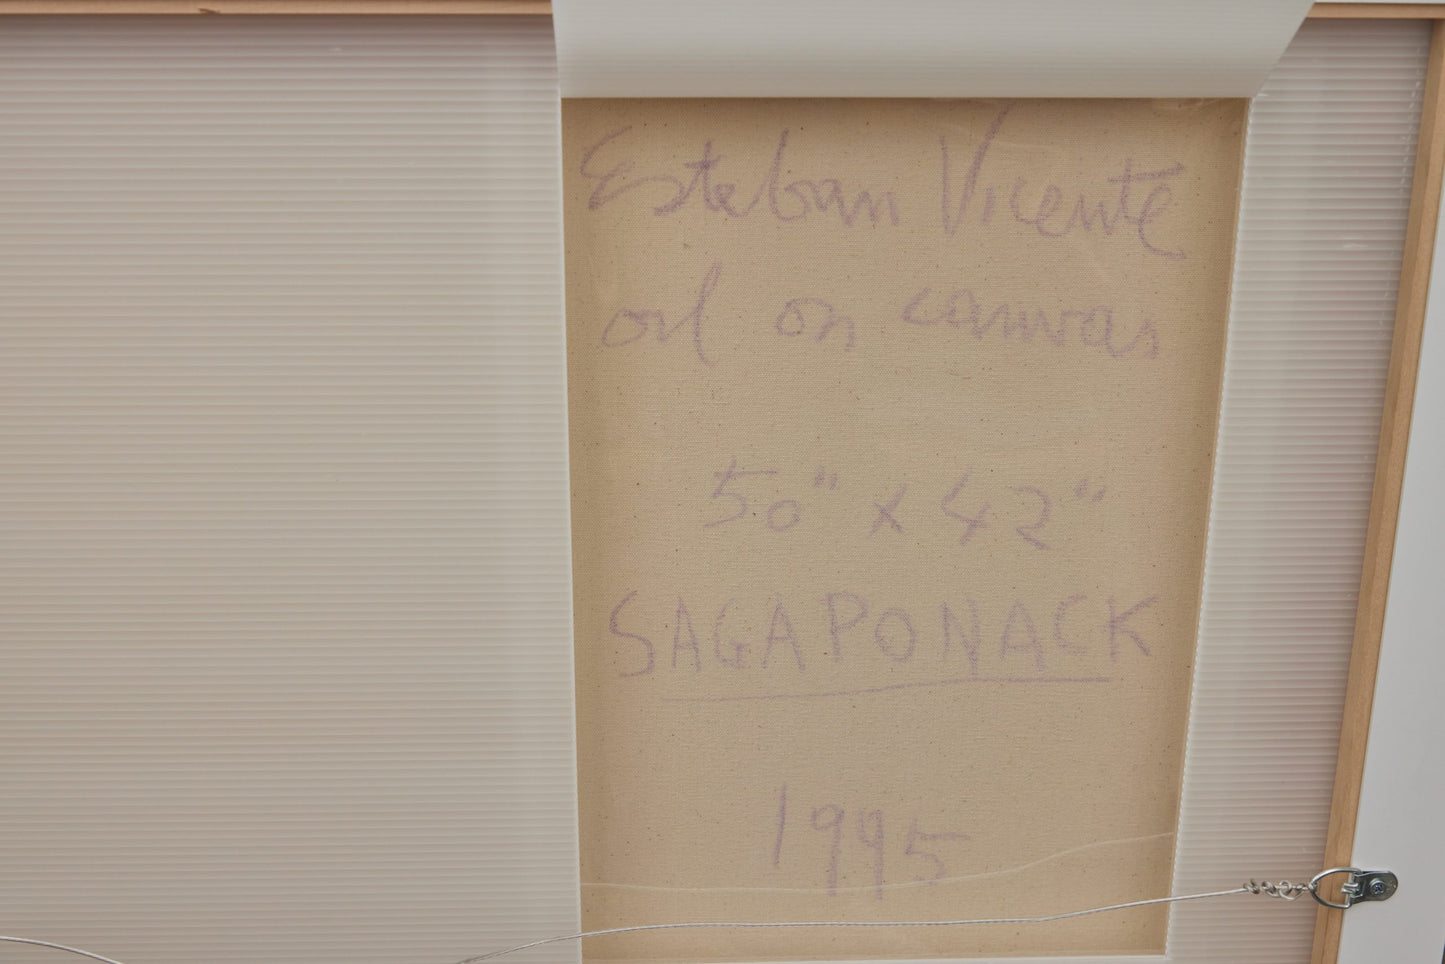 Esteban Vicente
oil on canvas
50" x 42"
SAGAPONACK
1995